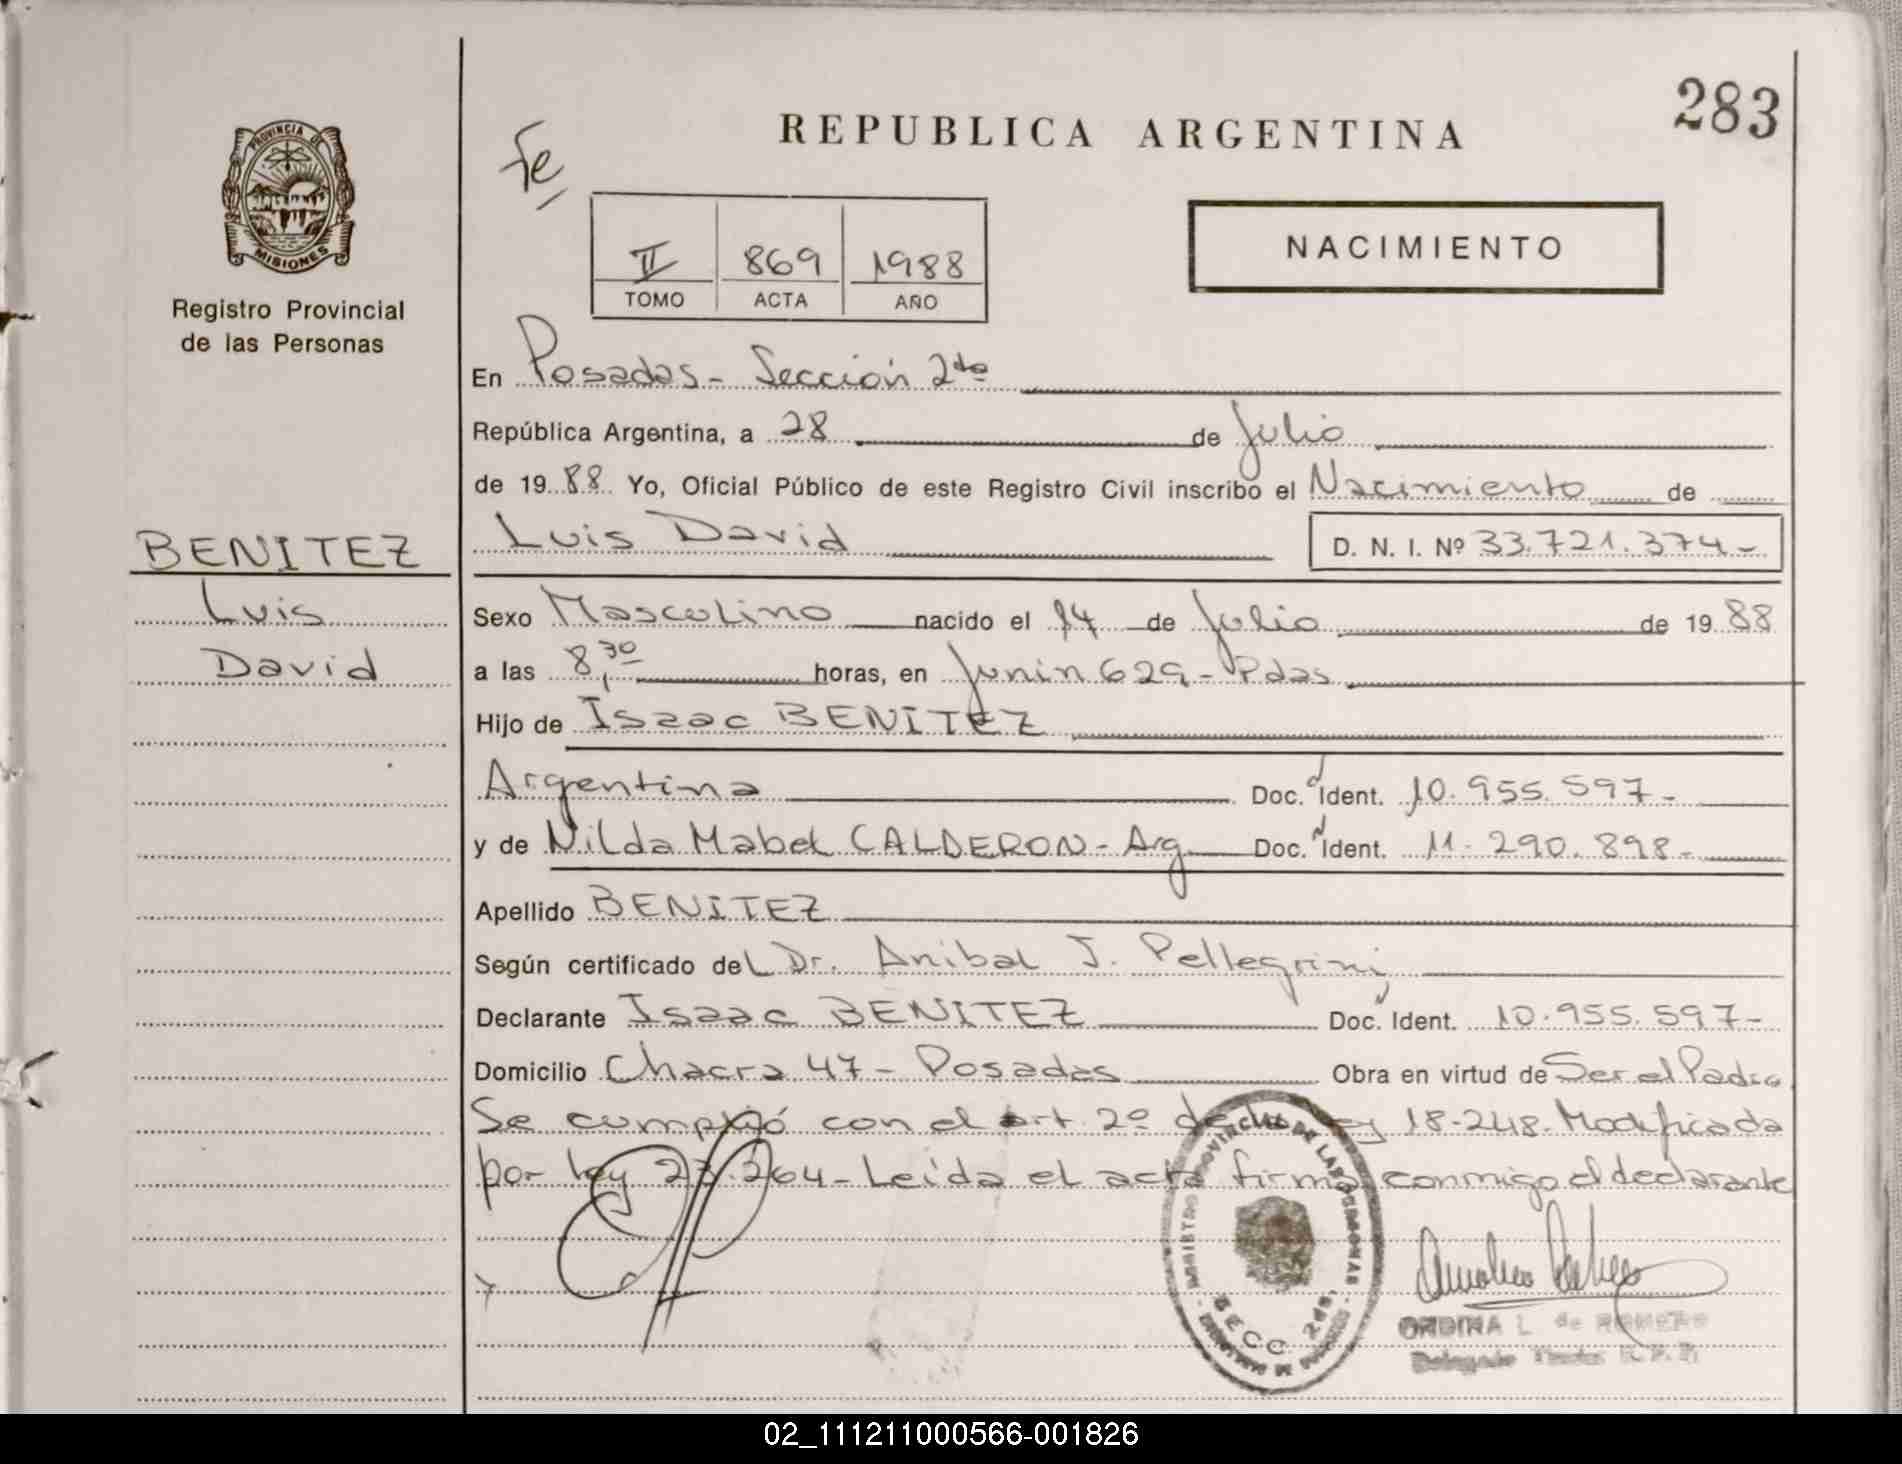 283
REPUBLICA ARGENTINA
Fe
PROVINCIA DE
MISIONES
NACIMIENTO
II 869 1988
TOMO ACTA AÑO
Registro Provincial
de las Personas
En Posadas - Sección 2da
República Argentina, a 28 de Julio
de 1988 Yo, Oficial Público de este Registro Civil inscribo el Nacimiento de
BENITEZ
Luis David D. N. I. Nº 33.721.374-
Luis
David
Sexo Mascolino nacido el 14 de Julio de 1988
a las 8,30 horas, en Junin 629 - Pdas
Hijo de Isaac BENITEZ
Argentina Doc. Ident. 10.955.597-
y de Nilda Mabel CALDERON - Arg. Doc. Ident. 11.290.898-
Apellido BENITEZ
Según certificado del Dr. Anibal J. Pellegrini
Declarante Isaac BENITEZ Doc. Ident. 10.955.597-
Domicilio Chacra 47 - Posadas Obra en virtud de Ser el Padre
Se cumplió con el art. 2º de la ley 18.248. Modificada
por ley 23.264 - Leída el acta firma conmigo el declarante
PROVINCIAL DE LAS PERSONAS
SECC. 2da.
L. de ROMERO
Delegado
02_111211000566-001826